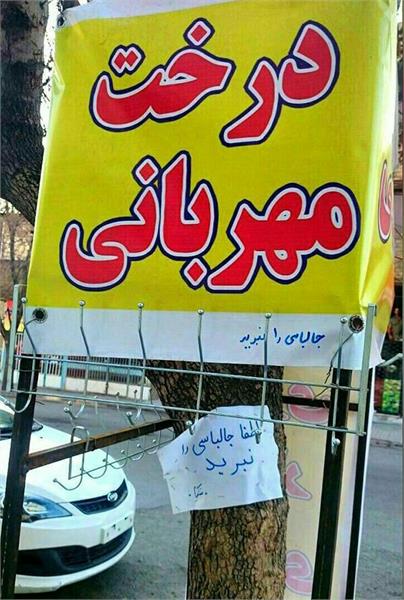 درخت
مهربانی
جالباسی را نبرید
لطفا جالباسی را
نبرید